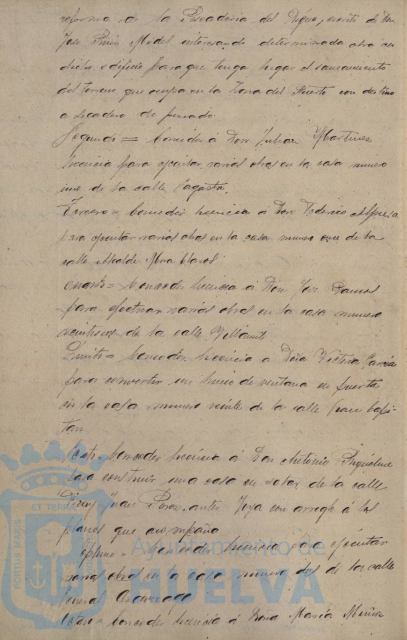 reforma de la Pescadería del Dique, escrito de Don
José Ruiz Medel interesando determinada obra en
dicho edificio para que tenga lugar el saneamiento
del terreno que ocupa en la Zona del Puerto con destino
a secadero de pescado
Segundo = Conceder á Don Julian Martinez
licencia para ejecutar varias obras en la casa numero
uno de la calle Sagasta.
Tercero = Conceder licencia á Don Federico
para ejecutar varias obras en la casa numero once de la
calle Alcalde Mora Claros
Cuarto = Conceder licencia á Don José Ramos
para efectuar varias obras en la casa numero
de la calle
Quinto = Conceder licencia a Doña Victoria Garcia
para convertir un hueco de ventana en puerta
en la casa numero veinte de la calle Gran Capi-
tan
Sexto = Conceder licencia á Don Antonio
para construir una casa en solar de la calle
Juan Perez, antes con arreglo á los
planos que acompaña
Septimo = Conceder licencia para ejecutar
varias obras en la casa numero dos de la calle
General
Octavo = Conceder licencia á Doña María
Ayuntamiento de
HUELVA
PORTUS MARIS
ET TERRAE